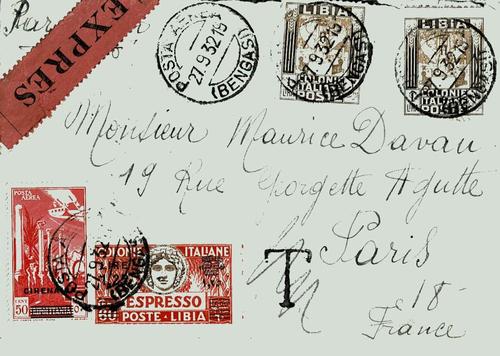 Par
EXPRÈS
POSTA AEREA
27.9.32.19
(BENGASI)
LIBIA
9.32.19
COLONIE
ITALIANE
POSTE
LIBIA
9.32.19
COLONIE
ITALIANE
POSTE
Monsieur Maurice Davau
19 Rue Georgette Agutte
Paris
18
France
T
POSTA AEREA
CIRENAICA
CENT 50
COLONIE ITALIANE
ESPRESSO
POSTE - LIBIA
POSTA
27.9.32
(BENGASI)